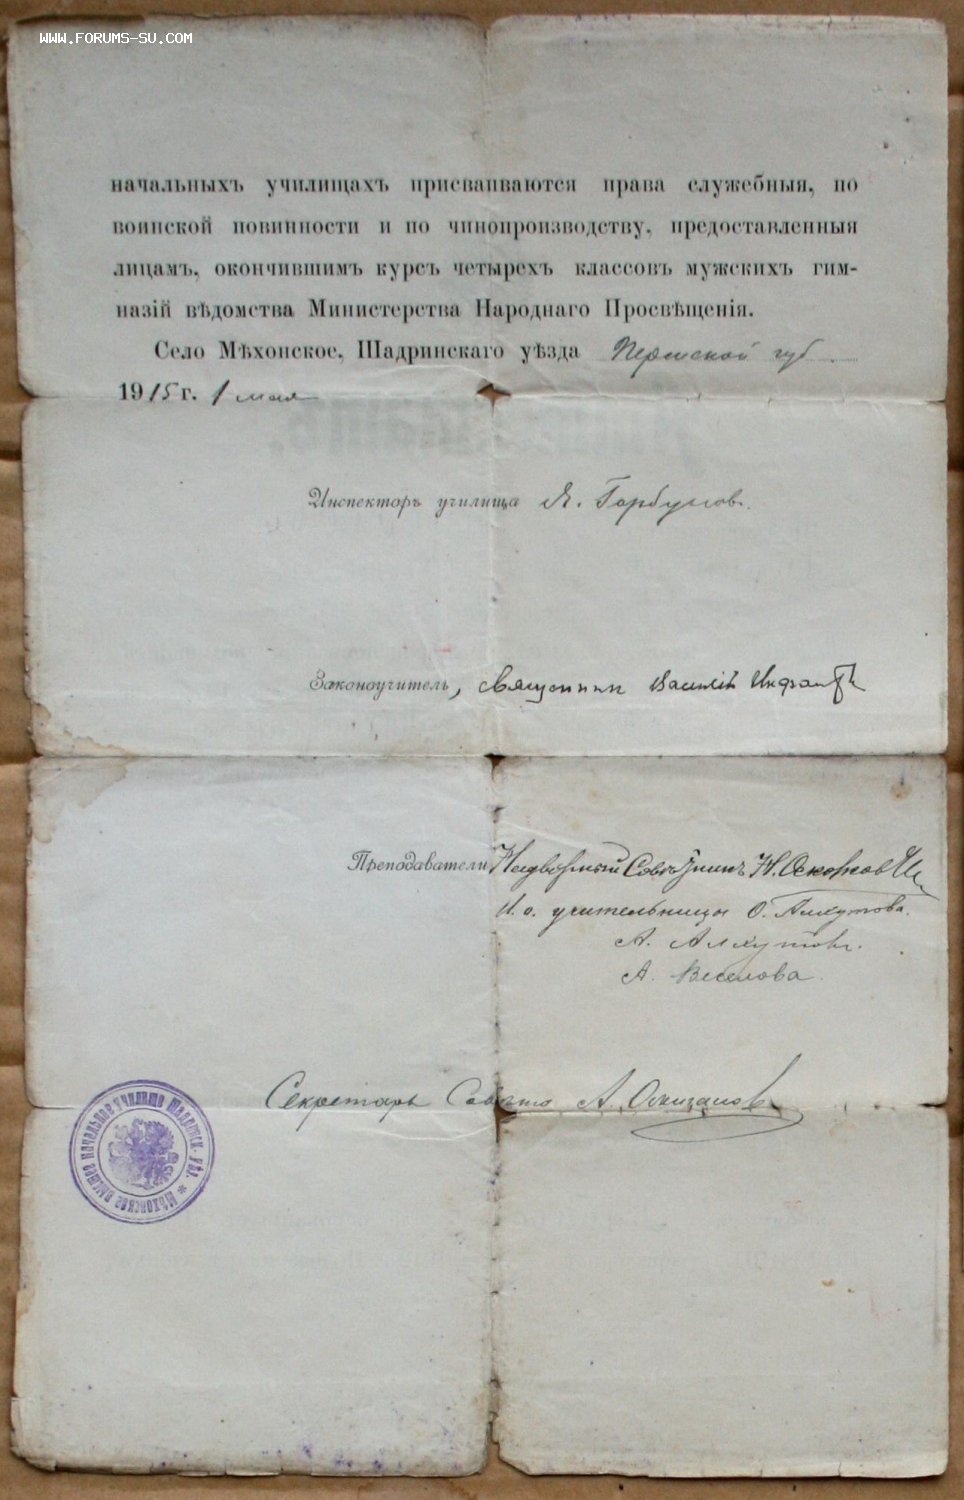 WWW.FORUMS-SU.COM
начальныхъ училищахъ присваиваются права служебныя, по
воинской повинности и по чинопроизводству, предоставленныя
лицамъ, окончившимъ курсъ четырехъ классовъ мужскихъ гим-
назій вѣдомства Министерства Народнаго Просвѣщенія.
Село Мѣхонское, Шадринскаго уѣзда Пермской губ.
1915 г. 1 мая
Инспекторъ училища Я. Горбунов.
Законоучитель, священник Василій
Преподаватели Надворный Совѣтникъ Н.
И. о. учительницы О.
А.
А. Веселова.
Секретарь Совѣта А.
Мѣхонское высшее начальное училище Шадринск. уѣз.